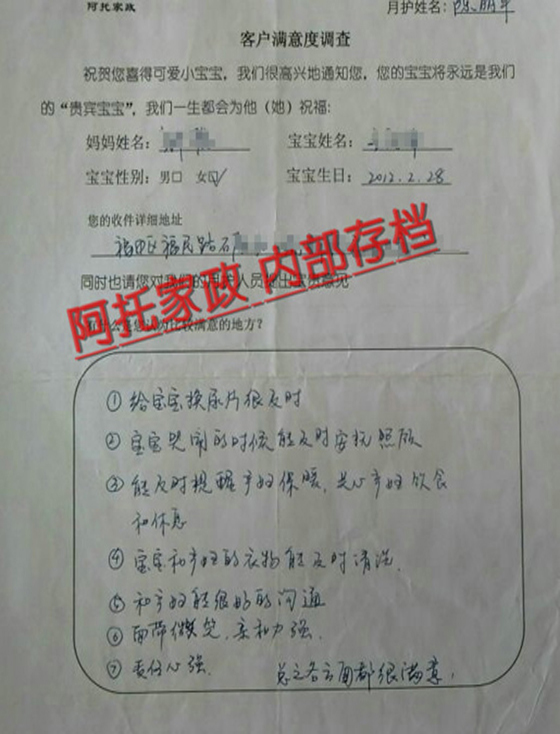 阿托家政
月护姓名：陈朋平
客户满意度调查
祝贺您喜得可爱小宝宝，我们很高兴地通知您，您的宝宝将永远是我们
的“贵宾宝宝”，我们一生都会为他（她）祝福:
妈妈姓名：
宝宝姓名：
宝宝性别：男□ 女□√
宝宝生日：2012.2.28
您的收件详细地址
福田区福民路
同时也请您对我们的月护人员提出宝贵意见
阿托家政 内部存档
有什么是您认为比较满意的地方？
① 给宝宝换尿片很及时
② 宝宝哭闹的时候能及时安抚照顾
③ 能及时提醒产妇保暖，关心产妇饮食
和休息
④ 宝宝和产妇的衣物能及时清洗.
⑤ 和产妇能很好的沟通
⑥ 面带微笑，亲和力强.
⑦ 责任心强.
总之各方面都很满意.